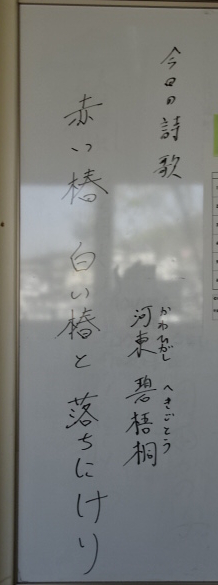 今日の詩歌
かわひがし へきごとう
河東 碧梧桐
赤い椿 白い椿と 落ちにけり